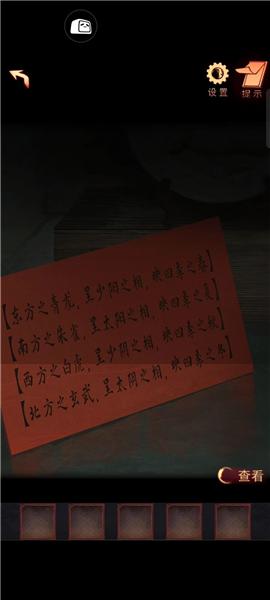 设置 提示
【东方之青龙,呈少阳之相,映四季之春】
【南方之朱雀,呈太阳之相,映四季之夏】
【西方之白虎,呈少阴之相,映四季之秋】
【北方之玄武,呈太阴之相,映四季之冬】
查看